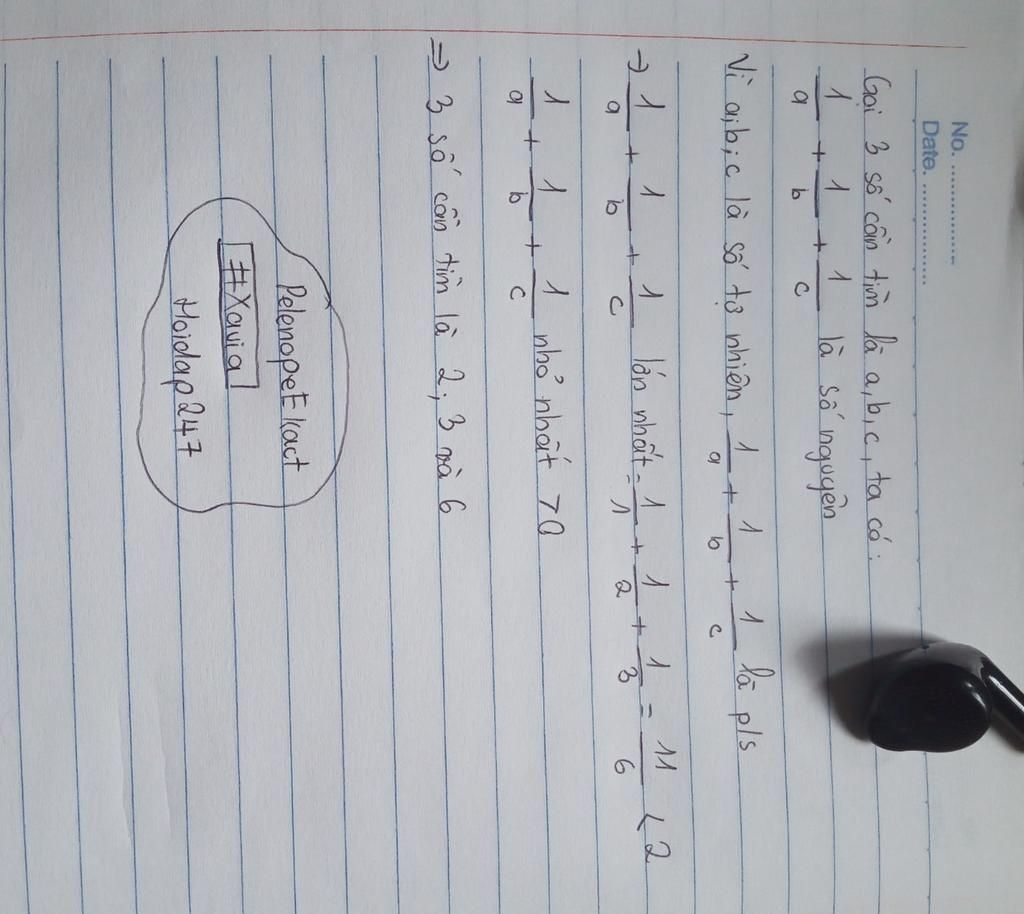 No. ................
Date. ................
Gọi 3 số cần tìm là a,b,c, ta có:
1/a + 1/b + 1/c là số nguyên
Vì a,b,c là số tự nhiên, 1/a + 1/b + 1/c là p/s
→ 1/a + 1/b + 1/c lớn nhất = 1/1 + 1/2 + 1/3 = 11/6 < 2
1/a + 1/b + 1/c nhỏ nhất > 0
⇒ 3 số cần tìm là 2; 3 và 6
PelenopeEkact
#Xavia
Hoidap247